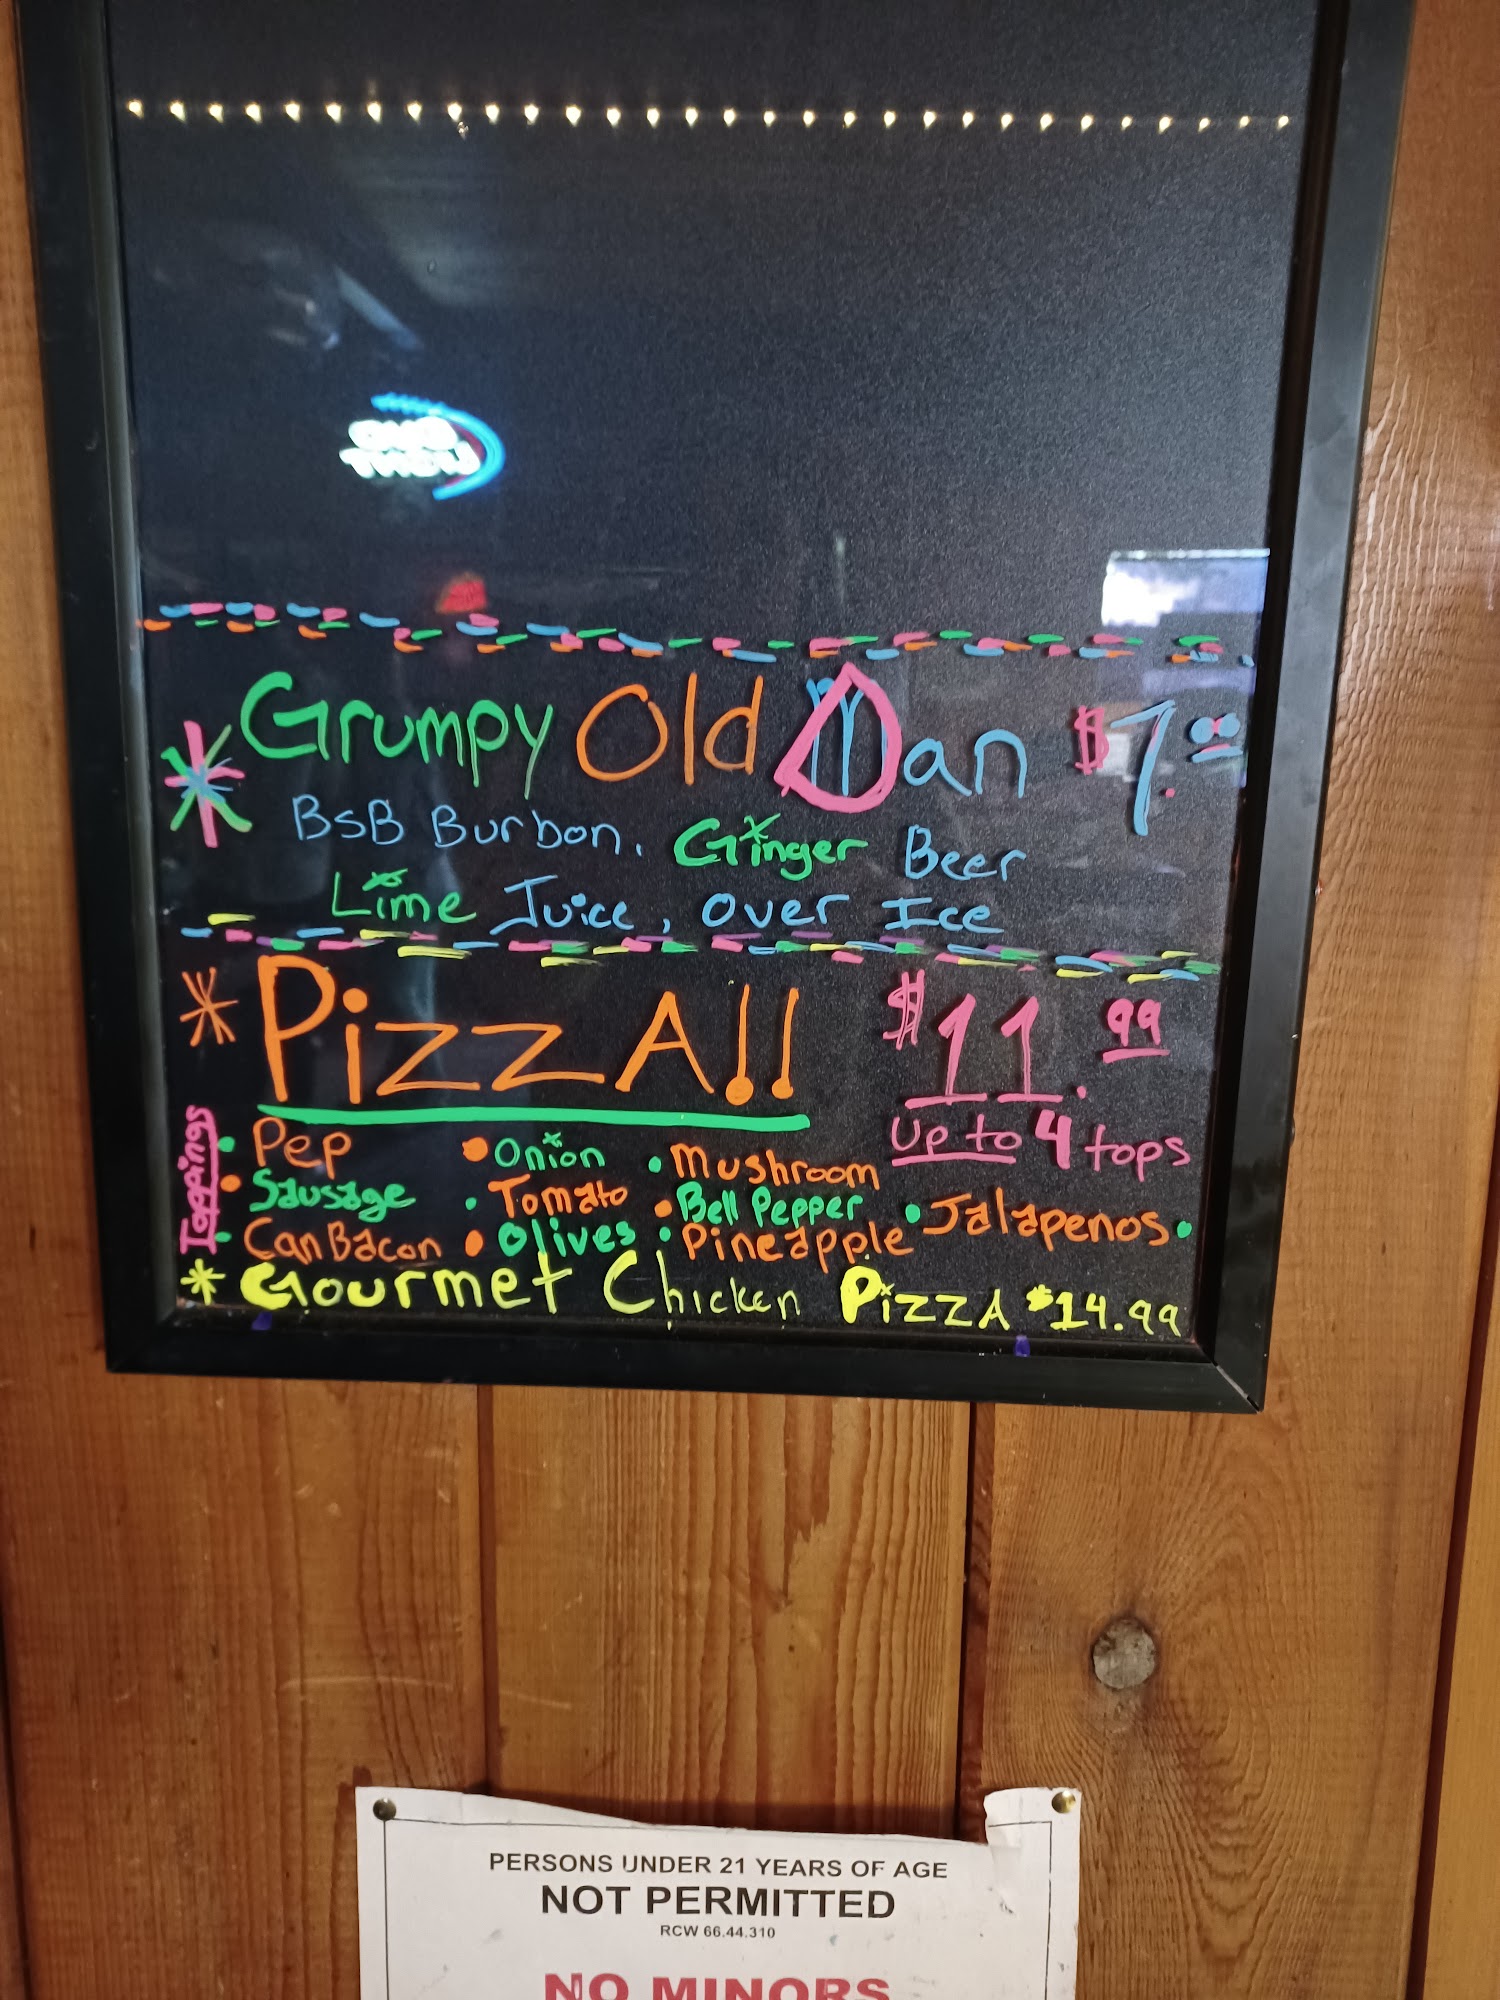 * Grumpy Old Man $7.00
BSB Burbon, Ginger Beer
Lime Juice, over Ice
* PizzA!! $11.99
up to 4 tops
Toppings
• Pep • Onion • Mushroom
• Sausage • Tomato • Bell Pepper • Jalapenos •
• Can Bacon • Olives • Pineapple
* Gourmet Chicken PizzA $14.99
PERSONS UNDER 21 YEARS OF AGE
NOT PERMITTED
RCW 66.44.310
NO MINORS